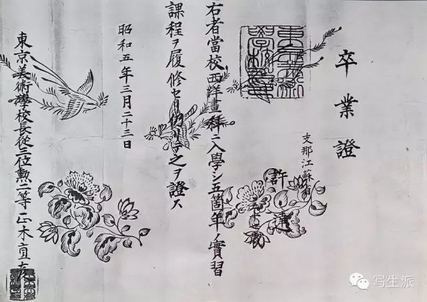 卒業證
支那江蘇省
許
右者當校西洋畫科ニ入學シ五箇年ノ實習
課程ヲ履修セリ仍テ之ヲ證ス
昭和五年三月二十三日
東京美術學校長從三位勲二等正木直彦
写生派